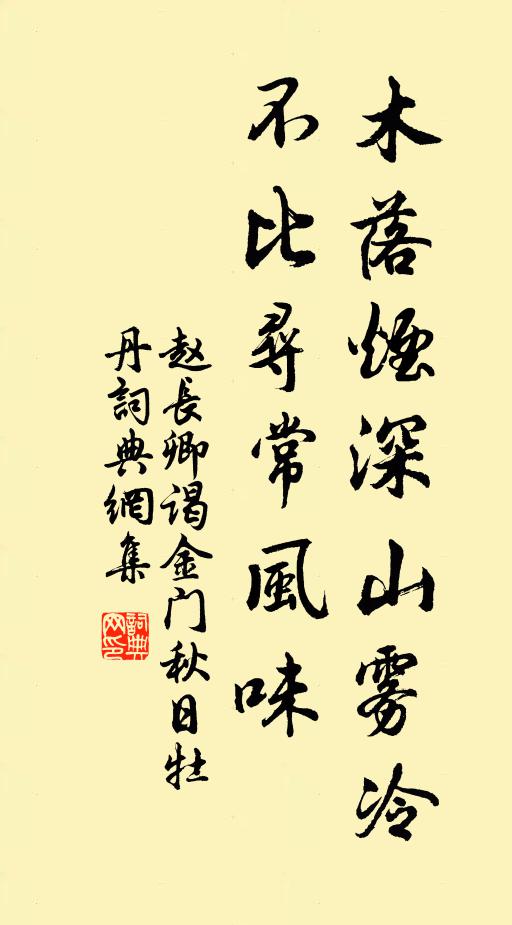 木落煙深山雾冷
不比尋常風味
赵長卿谒金门秋日牡
丹詞典網集
詞典
网印